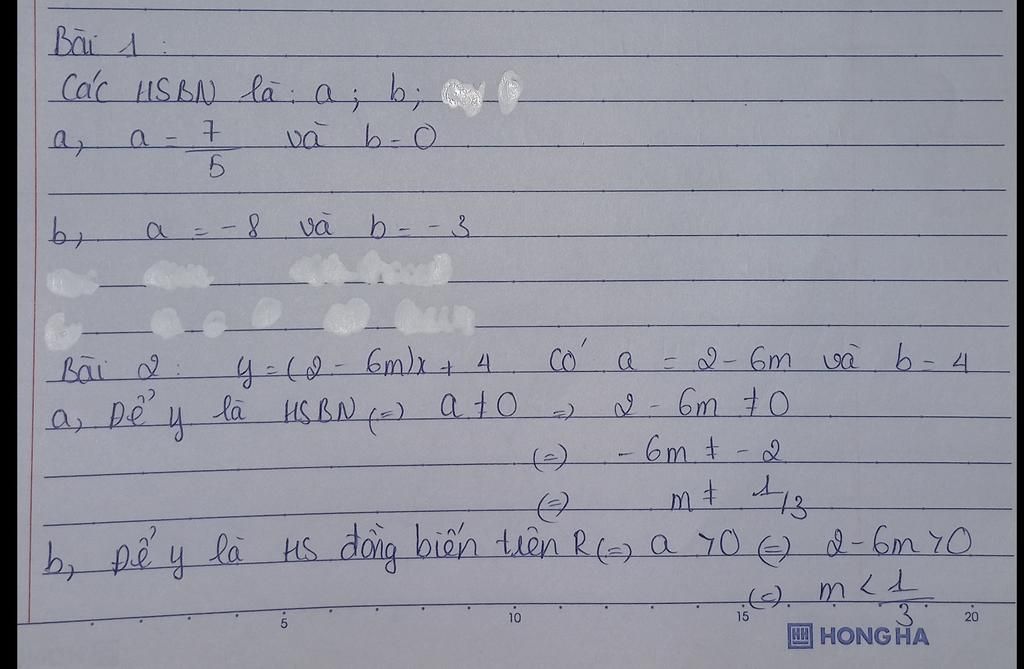 Bài 1:
Các HSBN là: a; b;
a, a = 7/5 và b = 0
b, a = -8 và b = -3
Bài 2: y = (2 - 6m)x + 4 có a = 2 - 6m và b = 4
a, Để y là HSBN (=) a ≠ 0 =) 2 - 6m ≠ 0
(=) - 6m ≠ - 2
(=) m ≠ 1/3
b, Để y là HS đồng biến trên R (=) a > 0 (=) 2 - 6m > 0
(=) m < 1/3
5 10 15 20
HONG HA